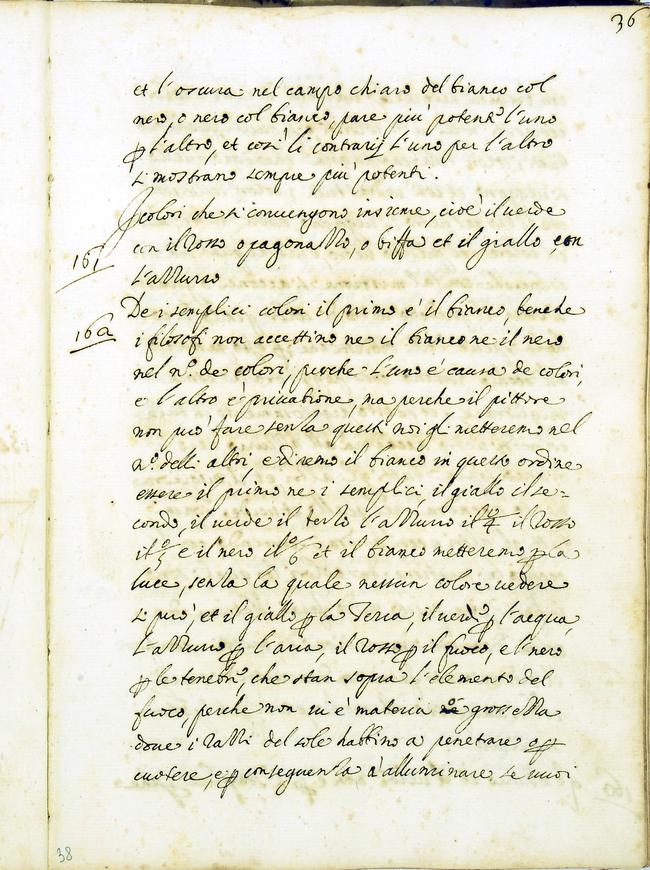 36
et l'oscura nel campo chiaro del bianco col
nero, o nero col bianco, pare piu' potente l'uno
p l'altro, et cosi' li contrarij l'uno per l'altro
si mostrano sempre piu' potenti.
I colori che si convengono insieme, cioè il verde
161
con il rosso o pagonazzo, o biffa et il giallo con
l'azzurro
De i semplici colori il primo e' il bianco, benche
162
i filosofi non accettino ne il bianco ne il nero
nel n.o de colori, perche l'uno é causa de colori,
e l'altro e' privatione, ma perche il pittore
non puo' fare senza questi noi gli metteremo nel
n.o delli altri, e diremo il bianco in questo ordine
essere il primo ne i semplici, il giallo il se=
condo, il verde il terzo l'azzurro il 4.o il rosso
il 5.o e il nero il 6.o et il bianco metteremo p la
luce, senza la quale nessun colore vedere
si puo', et il giallo p la Terra, il verde p l'acqua,
l'azzurro p l'aria, il rosso p il fuoco, e l'nero
p le tenebre, che stan sopra l'elemento del
fuoco, perche non vi e' materia o grossezza
dove i razzi del sole habbino a penetrare e p
cuotere, e p conseguenza a' alluminare se vuoi
38